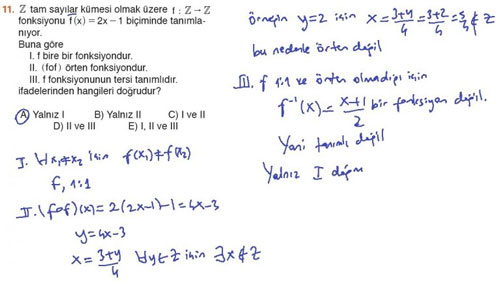 11. Z tam sayılar kümesi olmak üzere f : Z → Z
fonksiyonu f(x) = 2x − 1 biçiminde tanımla-
nıyor.
Buna göre
I. f bire bir fonksiyondur.
II. (fof) örten fonksiyondur.
III. f fonksiyonunun tersi tanımlıdır.
ifadelerinden hangileri doğrudur?
A) Yalnız I B) Yalnız II C) I ve II
D) II ve III E) I, II ve III
I. ∀x₁≠x₂ için f(x₁)≠f(x₂)
f, 1:1
II. (fof)(x) = 2(2x-1)-1 = 4x-3
y = 4x-3
x = (3+y)/4 ∀y∈Z için ∃x∉Z
örneğin y=2 için x = (3+y)/4 = (3+2)/4 = 5/4 ∉ Z
bu nedenle örten değil
III. f 1:1 ve örten olmadığı için
f⁻¹(x) = (x+1)/2 bir fonksiyon değil.
Yani tanımlı değil
Yalnız I doğru